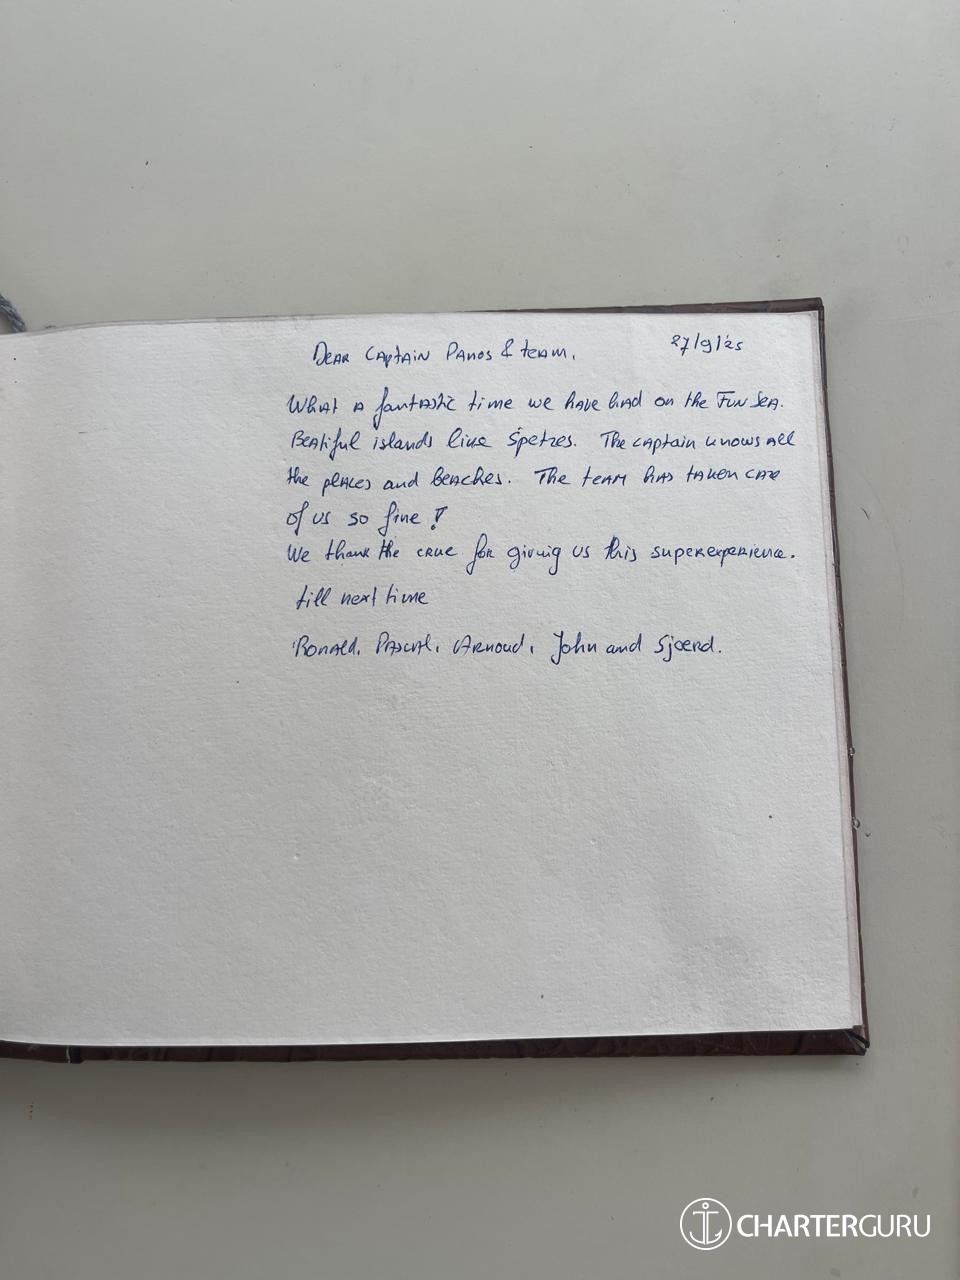 Dear Captain Panos & team,
27/9/'25
What a fantastic time we have had on the Fun Sea.
Beatiful islands like Spetzes. The captain knows all
the places and beaches. The team has taken care
of us so fine!
We thank the crue for giving us this superexperience.
till next time
Ronald, Pascal, Arnoud, John and Sjoerd.
CHARTERGURU